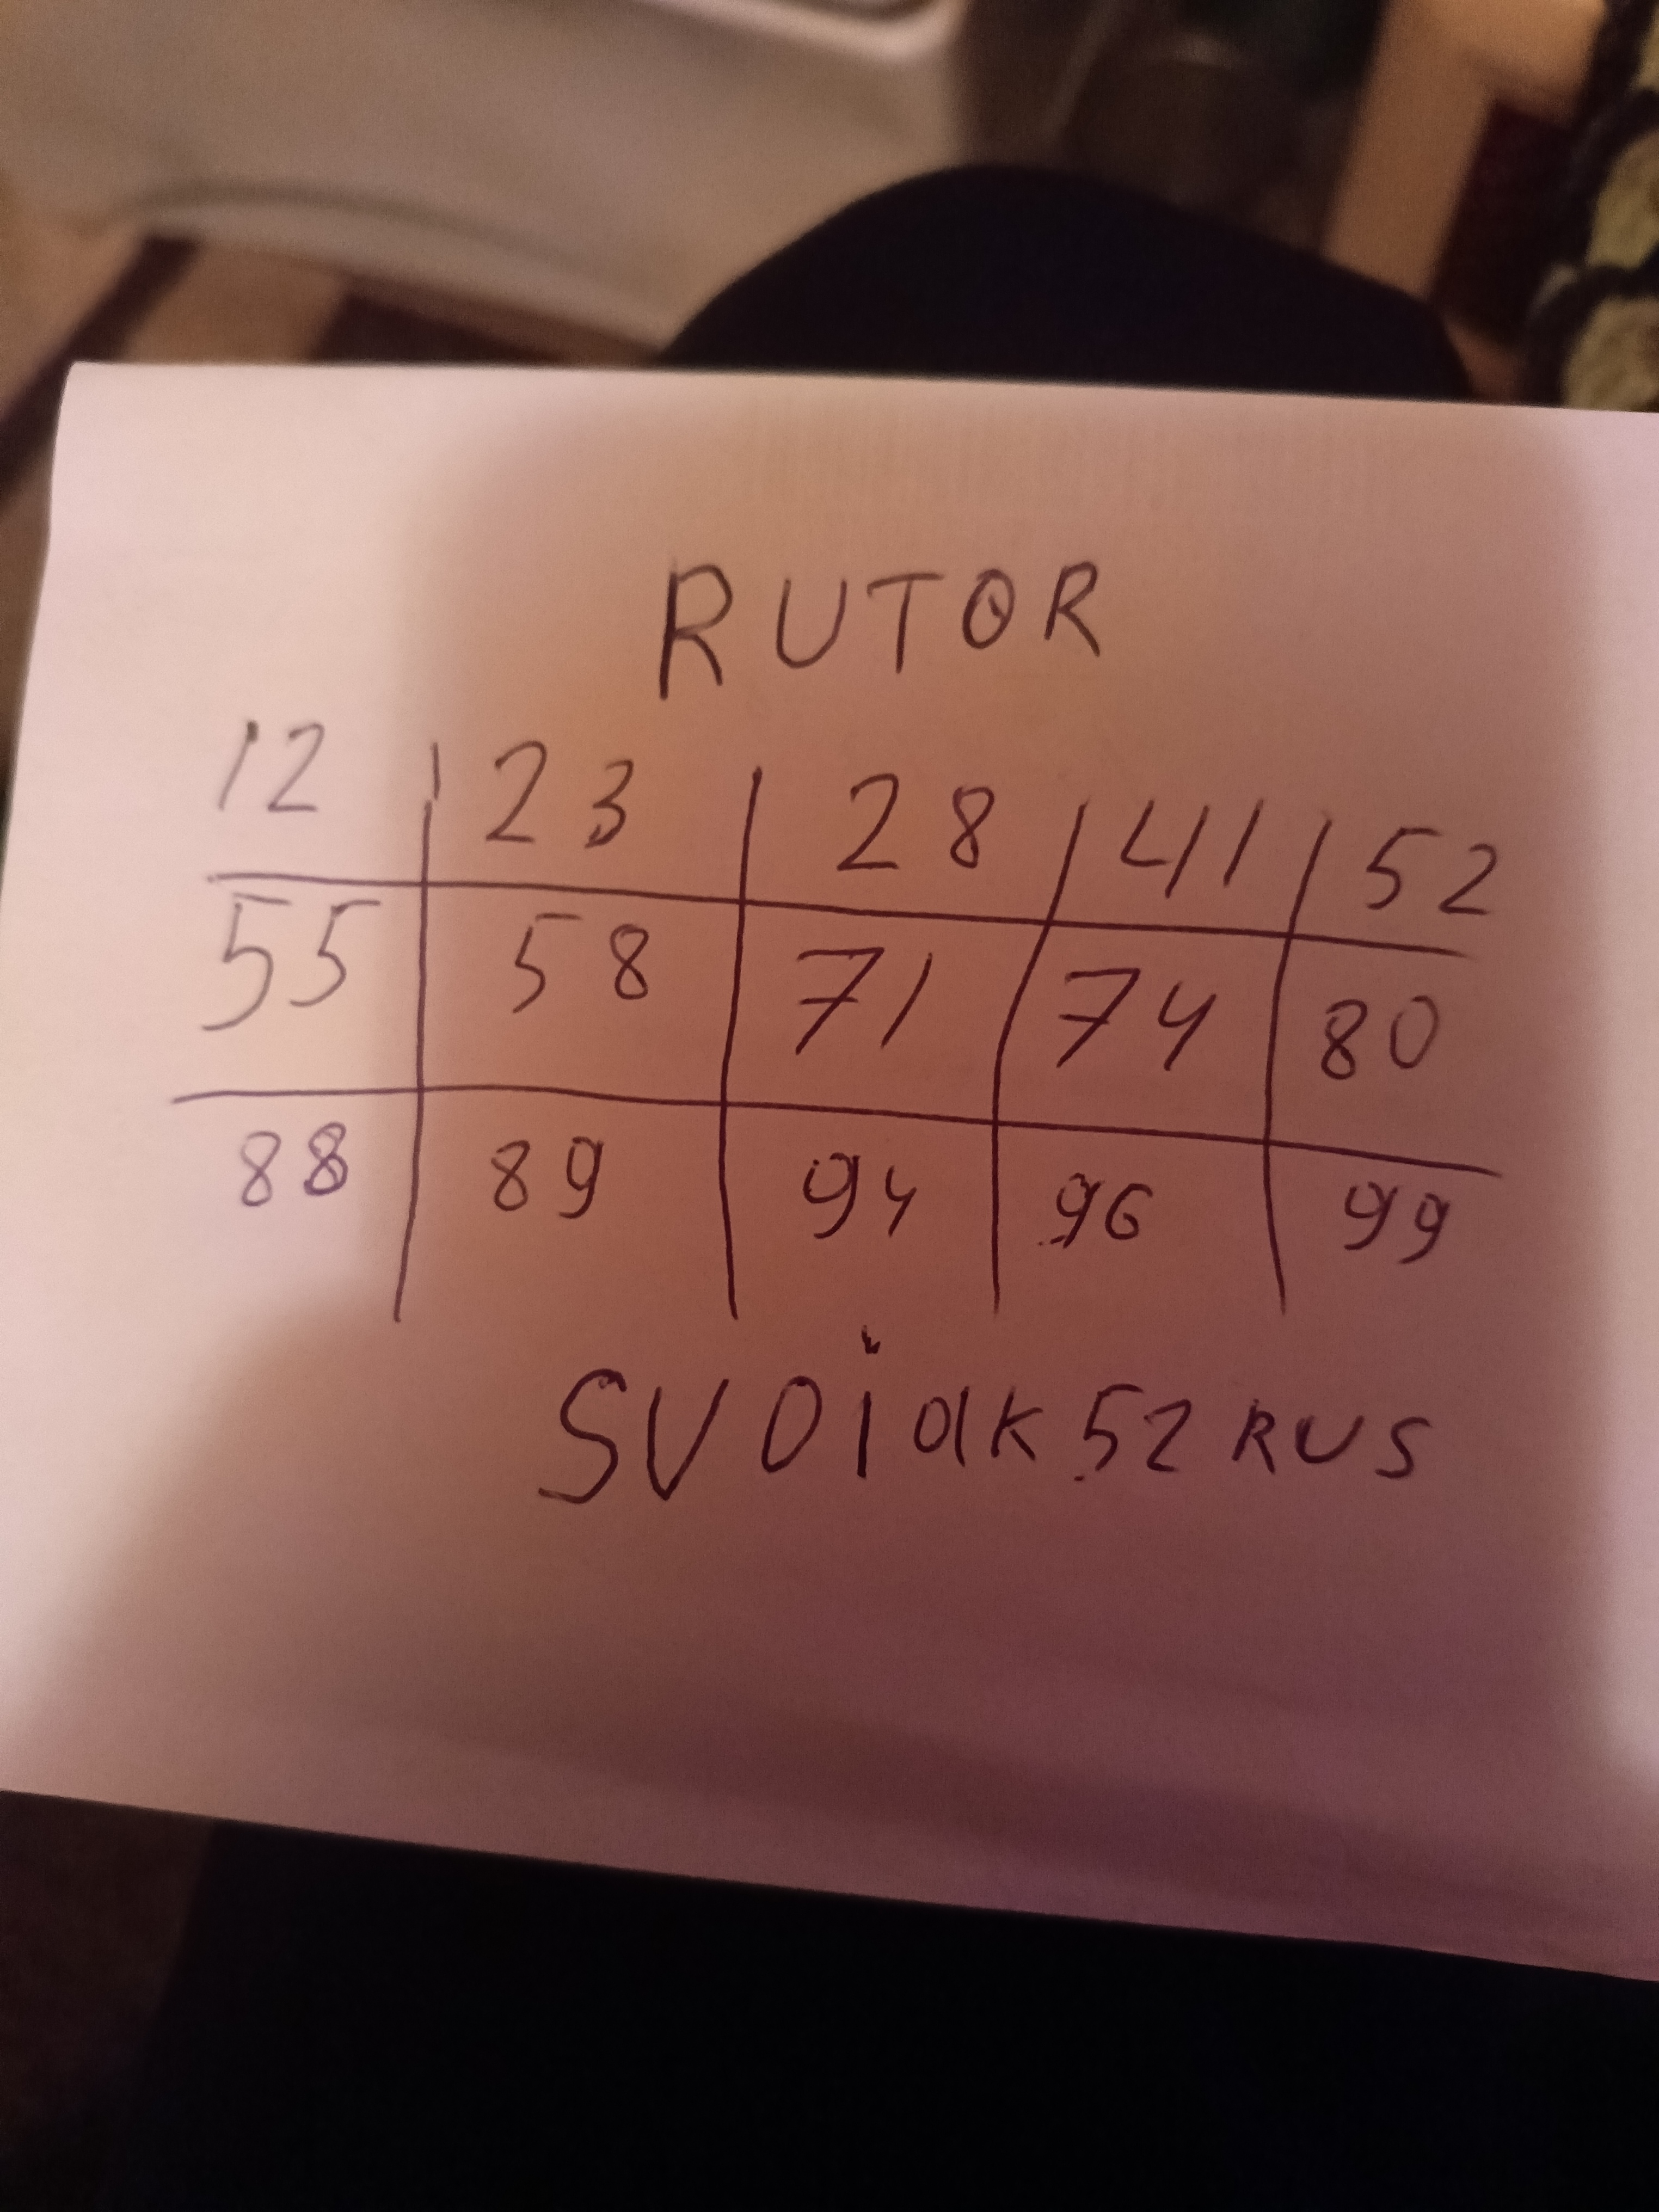 RUTOR
12 23 28 41 52
55 58 71 74 80
88 89 94 96 99
SVOiak52RUS